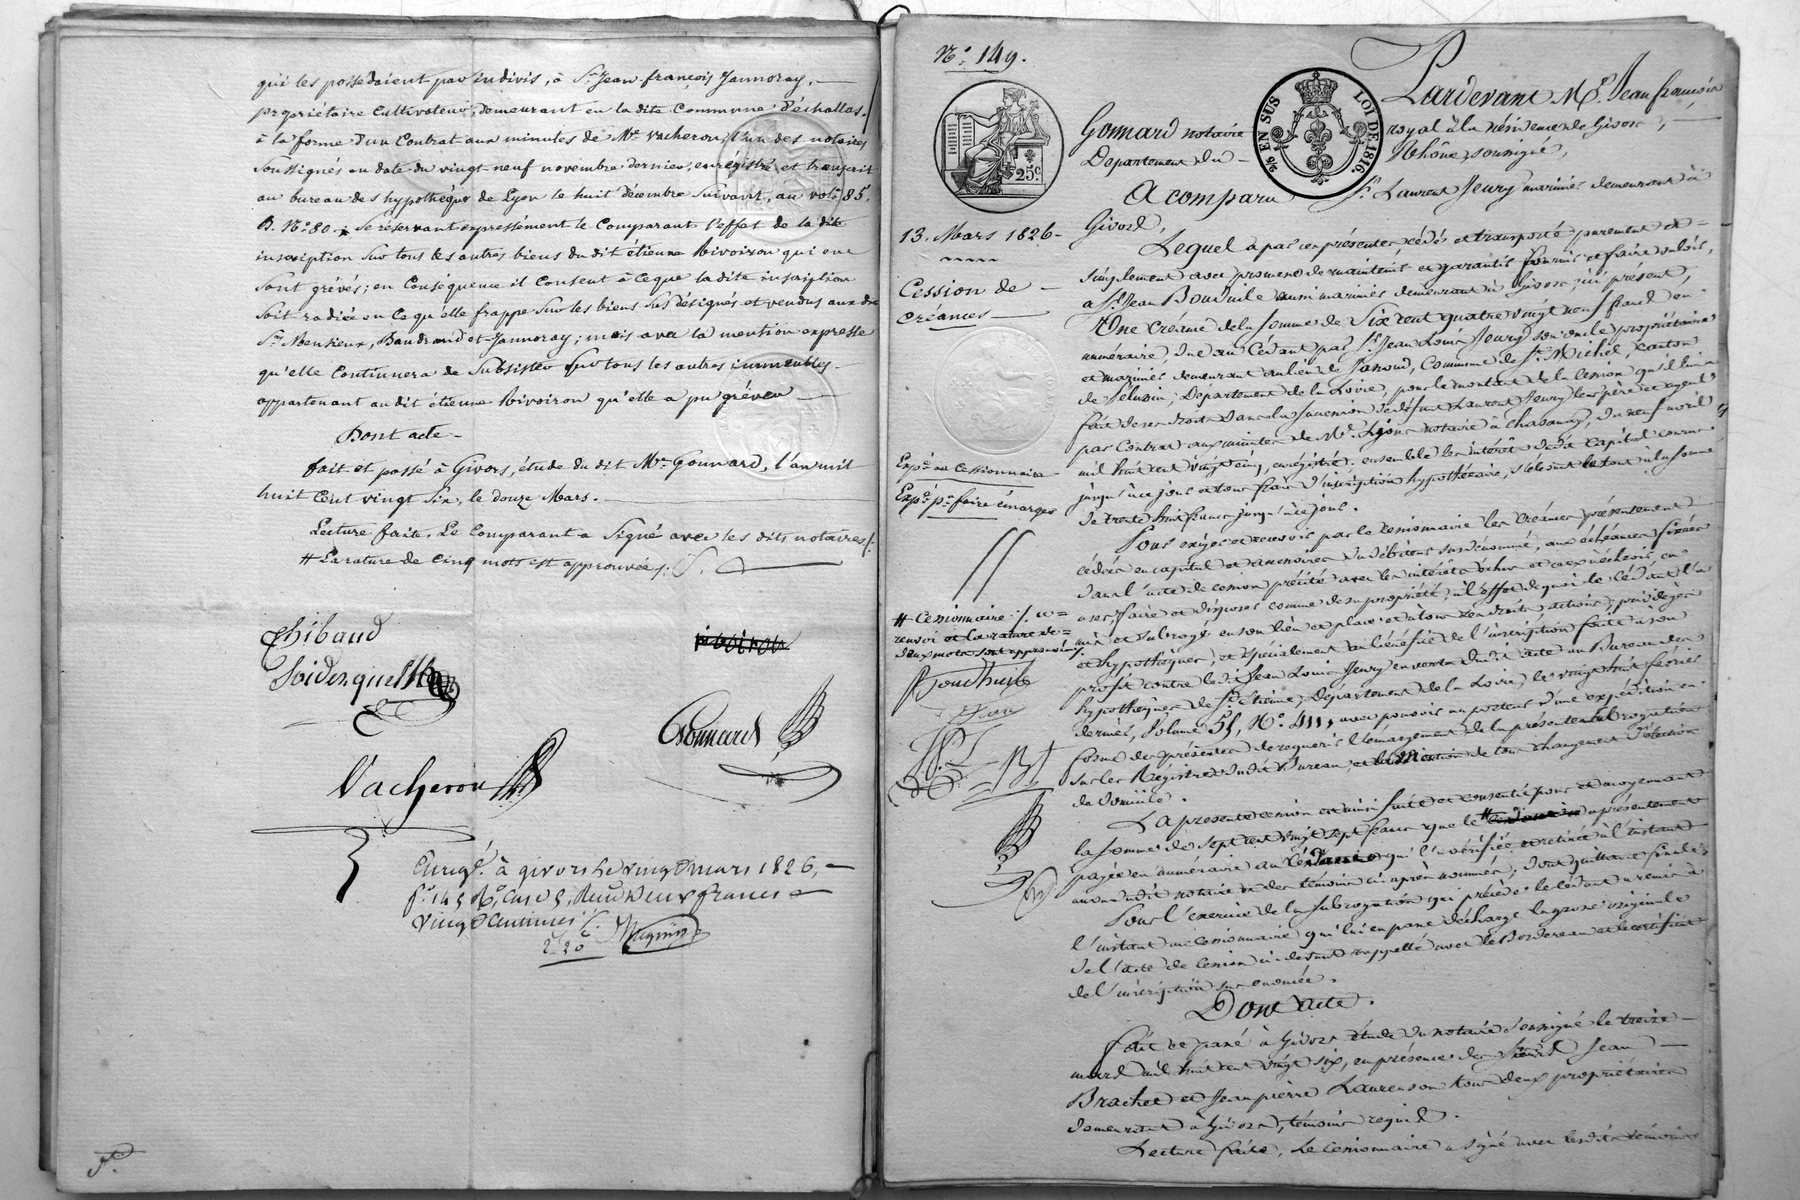 qui les possédaient par indivis, à Sr. Jean-françois Jannoray,
propriétaire cultivateur, demeurant en la dite Commune d'échallas,
à la forme d'un Contrat aux minutes de Me. Vacheron, l'un des notaires
soussignés en date du vingt-neuf novembre dernier, enregistré et transcrit
au bureau des hypothèques de Lyon le huit décembre suivant, au vol. 85,
N.° 80 se réservant expressément le Comparant l'effet de la dite
inscription sur tous les autres biens du dit étienne Rivoiron qui en
sont grévés; en Conséquence il Consent à ce que la dite inscription
soit radiée en ce qu'elle frappe sur les biens sus désignés et vendus aux dits
Srs. Baudrand et Jannoray; mais avec la mention expresse
qu'elle Continuera de subsister sur tous les autres immeubles
appartenant au dit étienne Rivoiron qu'elle a pu gréver
Dont acte
fait et passé à Givors, étude du dit Me. Gonnard, l'an mil
huit Cent vingt six, le douze Mars.
Lecture faite, Le Comparant a signé avec les dits notaires
# La rature de Cinq mots est approuvée
Thibaud
Gonnard
Vacheron
Enregé. à givors le vingt mars 1826,
f.° 145 Reçu Deux francs
vingt Centimes
2-20
N.° 149.
25c.
26 EN SUS
LOI DE 1816.
Pardevant Me. Jean françois
Gonnard notaire royal à la résidence de Givors,
Département du Rhône, soussigné,
A comparu Sr. Laurent Jeury marinier demeurant à
Givors,
13. Mars 1826
Cession de
Créances
Lequel a par ces présentes cédé et transporté purement et
simplement avec promesse de maintenir et garantir fournir et faire valoir,
à Sr. Jean Bouthuile aussi marinier demeurant à Givors ici présent,
Une Créance de la somme de Six cent quatre vingt neuf francs en
numéraire, due au Cédant par Sr. Jean Louis Jeury son oncle propriétaire
et marinier demeurant au lieu de Commune de St. Michel, canton
de Pélussin, Département de la Loire, pour le montant de la cession qu'il lui a
fait de ses droits dans la succession de défunt Laurent Jeury leur père et ayeul
par Contrat aux minutes de Me. notaire à Chavanay, du neuf avril
mil huit cent vingt cinq, enregistré; ensemble les intérêts dudit capital courus
jusqu'à ce jour et tous frais d'inscription hypothécaire, s'élevant le tout à la somme
de trente huit francs jusqu'à ce jour.
Expé. au Cessionnaire
Expé. pr. faire émarger
Pour exiger et recevoir par le cessionnaire les Créances présentement
cédées en capital et accessoires du débiteur susdénommé, aux échéances fixées
dans l'acte de cession précité avec les intérêts échus et ceux à échoir, en
user, faire et disposer comme de sa propriété, à l'effet de quoi le Cédant l'a
mis et subrogé en son lieu et place et à tous ses droits, actions, privilèges
et hypothèques, et spécialement au bénéfice de l'inscription faite à son
profit contre ledit Jean Louis Jeury en vertu dudit acte au Bureau des
hypothèques de St. Etienne, Département de la Loire, le vingt huit février
dernier, Volume 51, N.° 411, avec pouvoir au porteur d'une expédition en
forme des présentes de requérir l'émargement de la présente subrogation
sur les Registres dudit Bureau, et la mention de tout changement d'élection
de domicile.
# Cessionnaire ce
renvoi et la rature de
deux mots sont approuvés
Bouthuile
Jean
La présente cession est ainsi faite et consentie pour et moyennant
la somme de Sept cent vingt sept francs que le # a présentement
payée en numéraire au Cédant qui l'a vérifiée et retirée à l'instant
au vu dudit notaire et des témoins ci après nommés; dont quittance finale
Pour l'exercice de la subrogation qui précède le cédant a remis à
l'instant au Cessionnaire qui lui en passe décharge la grosse originale
de l'acte de Cession ci-devant rappellé avec le Bordereau et le certificat
de l'inscription sus énoncée.
Dont Acte.
Fait et passé à Givors étude du notaire soussigné le treize
mars mil huit cent vingt six, en présence des Sieurs Jean
Brachet et Jean pierre Laurenson tous deux propriétaires
demeurant à Givors, témoins requis.
Lecture faite, le Cessionnaire a signé avec lesdits témoins